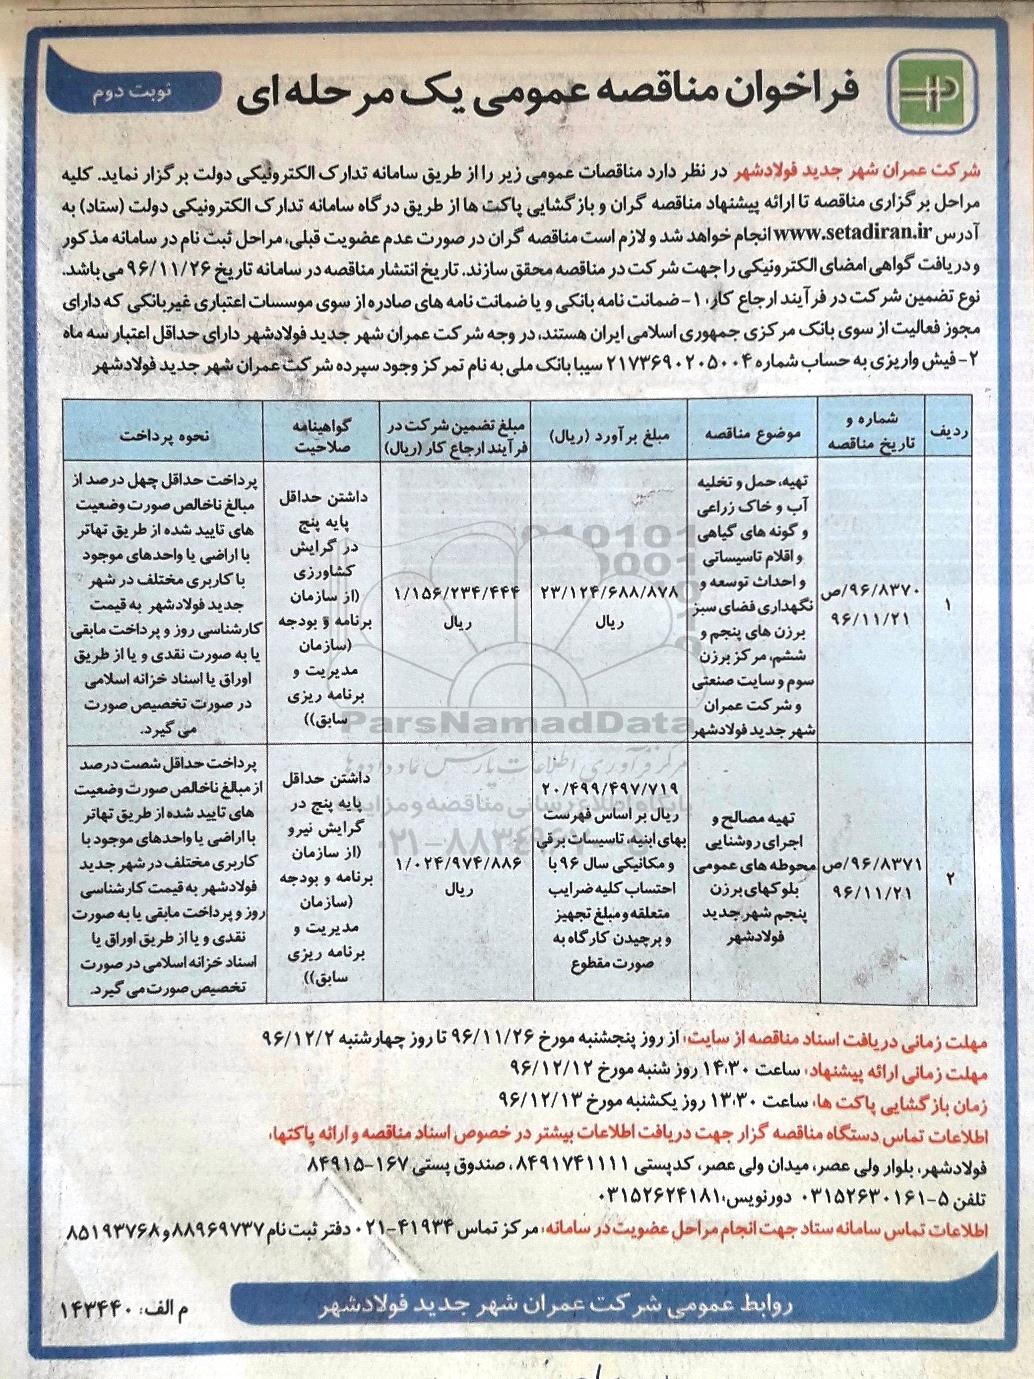 فراخوان مناقصه عمومی یک مرحله ای
نوبت دوم
شرکت عمران شهر جدید فولادشهر در نظر دارد مناقصات عمومی زیر را از طریق سامانه تدارک الکترونیکی دولت برگزار نماید. کلیه
مراحل برگزاری مناقصه تا ارائه پیشنهاد مناقصه گران و بازگشایی پاکت ها از طریق درگاه سامانه تدارک الکترونیکی دولت (ستاد) به
آدرس www.setadiran.ir انجام خواهد شد و لازم است مناقصه گران در صورت عدم عضویت قبلی، مراحل ثبت نام در سامانه مذکور
و دریافت گواهی امضای الکترونیکی را جهت شرکت در مناقصه محقق سازند. تاریخ انتشار مناقصه در سامانه تاریخ ۹۶/۱۱/۲۶ می باشد.
نوع تضمین شرکت در فرآیند ارجاع کار: ۱- ضمانت نامه بانکی و یا ضمانت نامه های صادره از سوی موسسات اعتباری غیربانکی که دارای
مجوز فعالیت از سوی بانک مرکزی جمهوری اسلامی ایران هستند، در وجه شرکت عمران شهر جدید فولادشهر دارای حداقل اعتبار سه ماه
۲- فیش واریزی به حساب شماره ۲۱۷۳۶۹۰۲۰۵۰۰۴ سیبا بانک ملی به نام تمرکز وجود سپرده شرکت عمران شهر جدید فولادشهر
ردیف
شماره و
تاریخ مناقصه
موضوع مناقصه
مبلغ برآورد (ریال)
مبلغ تضمین شرکت در
فرآیند ارجاع کار (ریال)
گواهینامه
صلاحیت
نحوه پرداخت
۱
۹۶/۸۳۷۰/ص
۹۶/۱۱/۲۱
تهیه، حمل و تخلیه
آب و خاک زراعی
و گونه های گیاهی
و اقلام تاسیساتی
و احداث توسعه و
نگهداری فضای سبز
برزن های پنجم و
ششم، مرکز برزن
سوم و سایت صنعتی
و شرکت عمران
شهر جدید فولادشهر
۲۳/۱۲۴/۶۸۸/۸۷۸
ریال
۱/۱۵۶/۲۳۴/۴۴۴
ریال
داشتن حداقل
پایه پنج
در گرایش
کشاورزی
(از سازمان
برنامه و بودجه
(سازمان
مدیریت و
برنامه ریزی
سابق))
پرداخت حداقل چهل درصد از
مبالغ ناخالص صورت وضعیت
های تایید شده از طریق تهاتر
با اراضی یا واحدهای موجود
با کاربری مختلف در شهر
جدید فولادشهر به قیمت
کارشناسی روز و پرداخت مابقی
یا به صورت نقدی و یا از طریق
اوراق یا اسناد خزانه اسلامی
در صورت تخصیص صورت
می گیرد.
۲
۹۶/۸۳۷۱/ص
۹۶/۱۱/۲۱
تهیه مصالح و
اجرای روشنایی
محوطه های عمومی
بلوکهای برزن
پنجم شهر جدید
فولادشهر
۲۰/۴۹۹/۴۹۷/۷۱۹
ریال بر اساس فهرست
بهای ابنیه، تاسیسات برقی
و مکانیکی سال ۹۶ با
احتساب کلیه ضرایب
متعلقه و مبلغ تجهیز
و برچیدن کارگاه به
صورت مقطوع
۱/۰۲۴/۹۷۴/۸۸۶
ریال
داشتن حداقل
پایه پنج در
گرایش نیرو
(از سازمان
برنامه و بودجه
(سازمان
مدیریت و
برنامه ریزی
سابق))
پرداخت حداقل شصت درصد
از مبالغ ناخالص صورت وضعیت
های تایید شده از طریق تهاتر
با اراضی یا واحدهای موجود با
کاربری مختلف در شهر جدید
فولادشهر به قیمت کارشناسی
روز و پرداخت مابقی یا به صورت
نقدی و یا از طریق اوراق یا
اسناد خزانه اسلامی در صورت
تخصیص صورت می گیرد.
ParsNamadData
مرکز فرآوری اطلاعات پارس نماد داده ها
پایگاه اطلاع رسانی مناقصه و مزایده
مهلت زمانی دریافت اسناد مناقصه از سایت: از روز پنجشنبه مورخ ۹۶/۱۱/۲۶ تا روز چهارشنبه ۹۶/۱۲/۲
مهلت زمانی ارائه پیشنهاد: ساعت ۱۴:۳۰ روز شنبه مورخ ۹۶/۱۲/۱۲
زمان بازگشایی پاکت ها: ساعت ۱۳:۳۰ روز یکشنبه مورخ ۹۶/۱۲/۱۳
اطلاعات تماس دستگاه مناقصه گزار جهت دریافت اطلاعات بیشتر در خصوص اسناد مناقصه و ارائه پاکتها:
فولادشهر، بلوار ولی عصر، میدان ولی عصر، کدپستی ۸۴۹۱۷۴۱۱۱۱، صندوق پستی ۱۶۷-۸۴۹۱۵
تلفن ۵-۰۳۱۵۲۶۳۰۱۶۱ دورنویس: ۰۳۱۵۲۶۲۴۱۸۱
اطلاعات تماس سامانه ستاد جهت انجام مراحل عضویت در سامانه: مرکز تماس ۴۱۹۳۴-۰۲۱ دفتر ثبت نام ۸۸۹۶۹۷۳۷ و ۸۵۱۹۳۷۶۸
روابط عمومی شرکت عمران شهر جدید فولادشهر
م الف: ۱۴۳۴۴۰